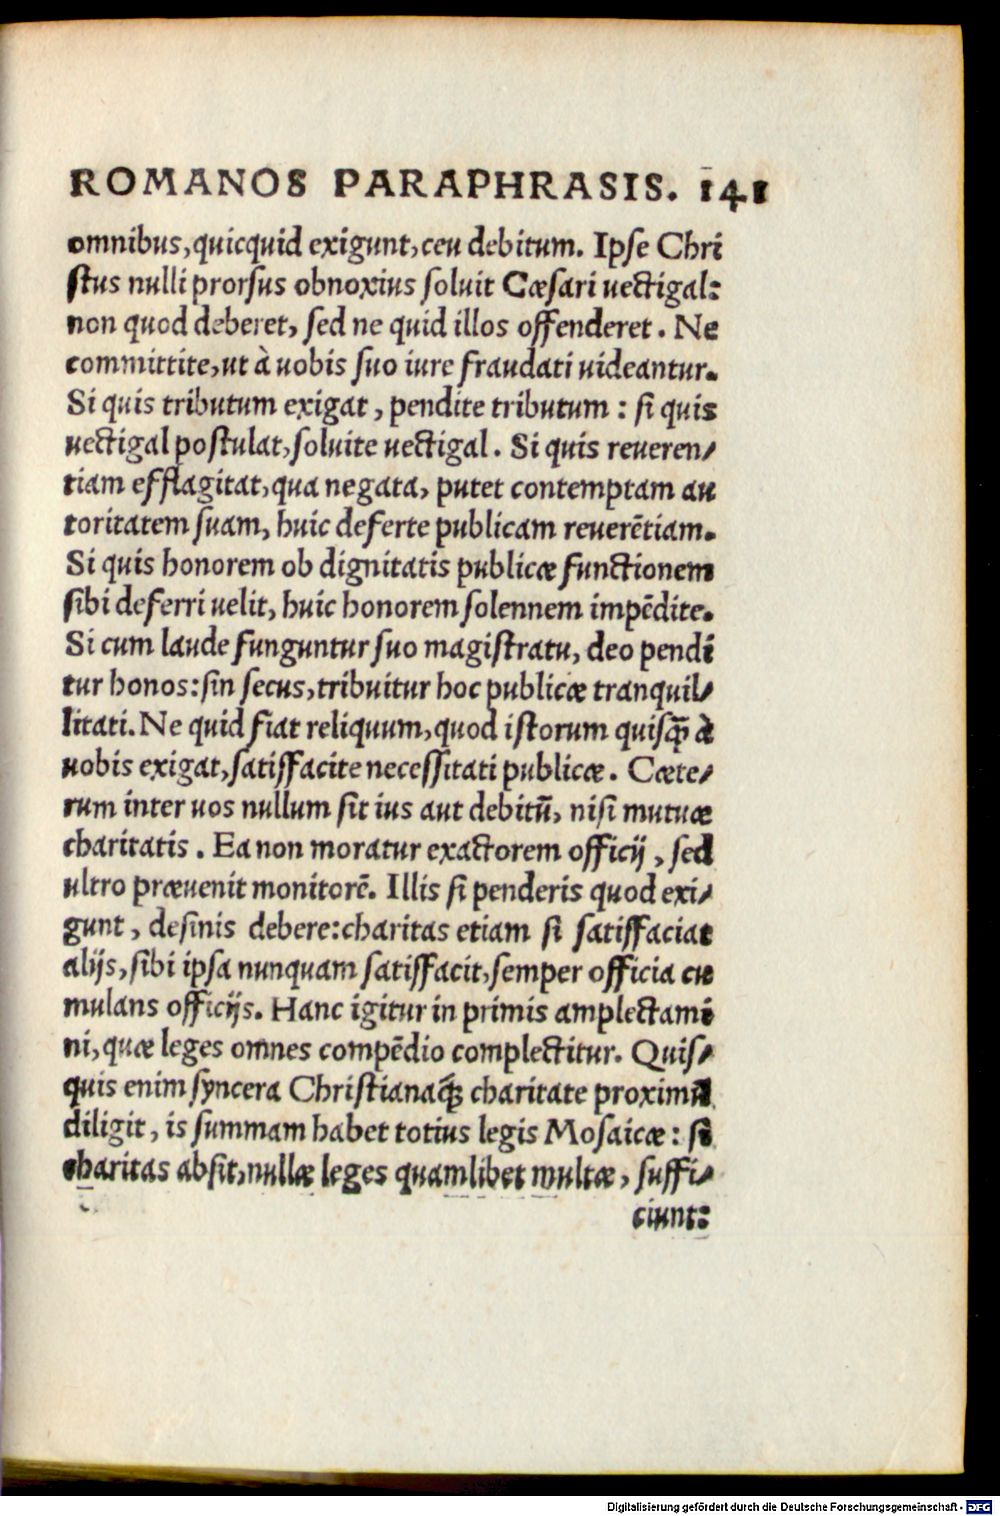 ROMANOS PARAPHRASIS. 141
omnibus, quicquid exigunt, ceu debitum. Ipſe Chri
ſtus nulli prorſus obnoxius ſoluit Cæſari uectigal:
non quod deberet, ſed ne quid illos offenderet. Ne
committite, ut à uobis ſuo iure fraudati uideantur.
Si quis tributum exigat, pendite tributum: ſi quis
uectigal poſtulat, ſoluite uectigal. Si quis reueren⸗
tiam efflagitat, qua negata, putet contemptam au
toritatem ſuam, huic deferte publicam reuerẽtiam.
Si quis honorem ob dignitatis publicæ functionem
ſibi deferri uelit, huic honorem ſolennem impẽdite.
Si cum laude funguntur ſuo magiſtratu, deo pendi
tur honos: ſin ſecus, tribuitur hoc publicæ tranquil⸗
litati. Ne quid fiat reliquum, quod iſtorum quiſq̃ à
uobis exigat, ſatiſfacite neceſſitati publicæ. Cæte⸗
rum inter uos nullum ſit ius aut debitũ, niſi mutuæ
charitatis. Ea non moratur exactorem officij, ſed
ultro præuenit monitorẽ. Illis ſi penderis quod exi⸗
gunt, deſinis debere: charitas etiam ſi ſatiſfaciat
alijs, ſibi ipſa nunquam ſatiſfacit, ſemper officia cu
mulans officijs. Hanc igitur in primis amplectami
ni, quæ leges omnes compẽdio complectitur. Quiſ⸗
quis enim ſyncera Chriſtianaq́ꝫ charitate proximũ
diligit, is ſummam habet totius legis Moſaicæ: ſi
charitas abſit, nullæ leges quamlibet multæ, ſuffi⸗
ciunt:
Digitalisierung gefördert durch die Deutsche Forschungsgemeinschaft - DFG